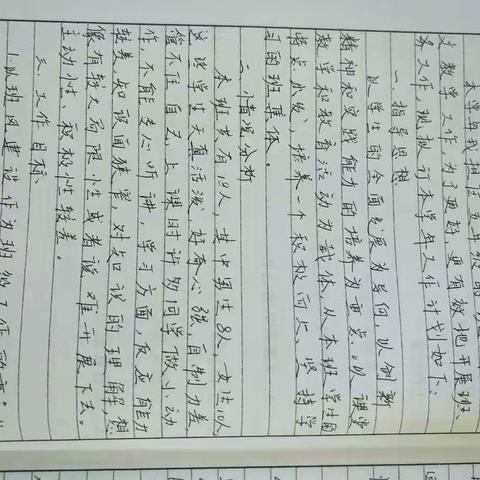 本学年我担任五年级的
文教学工作,为了更好,更有效地开展班
务工作,现拟订本学年工作计划如下:
一、指导思想
以学生的全面发展为导向,以创新
精神和实践能力的培养为重点。以课堂
教学和教育活动为载体,从本班学生的
特点出发,培养一个积极向上、坚持学
习的班集体。
二、情况分析
本班共有18人,其中男生8人,女生10人,
这些学生天真活泼,好奇心强,自制力差,
管不住自己,上课时许多同学做小动
作,不能专心听讲,学习方面,反应能力
较差,知识面狭窄,对知识的理解,想
像有较大局限性或者说难开展下去。
主动性、积极性较差。
三、工作目标
1.以班风建设作为班级工作的